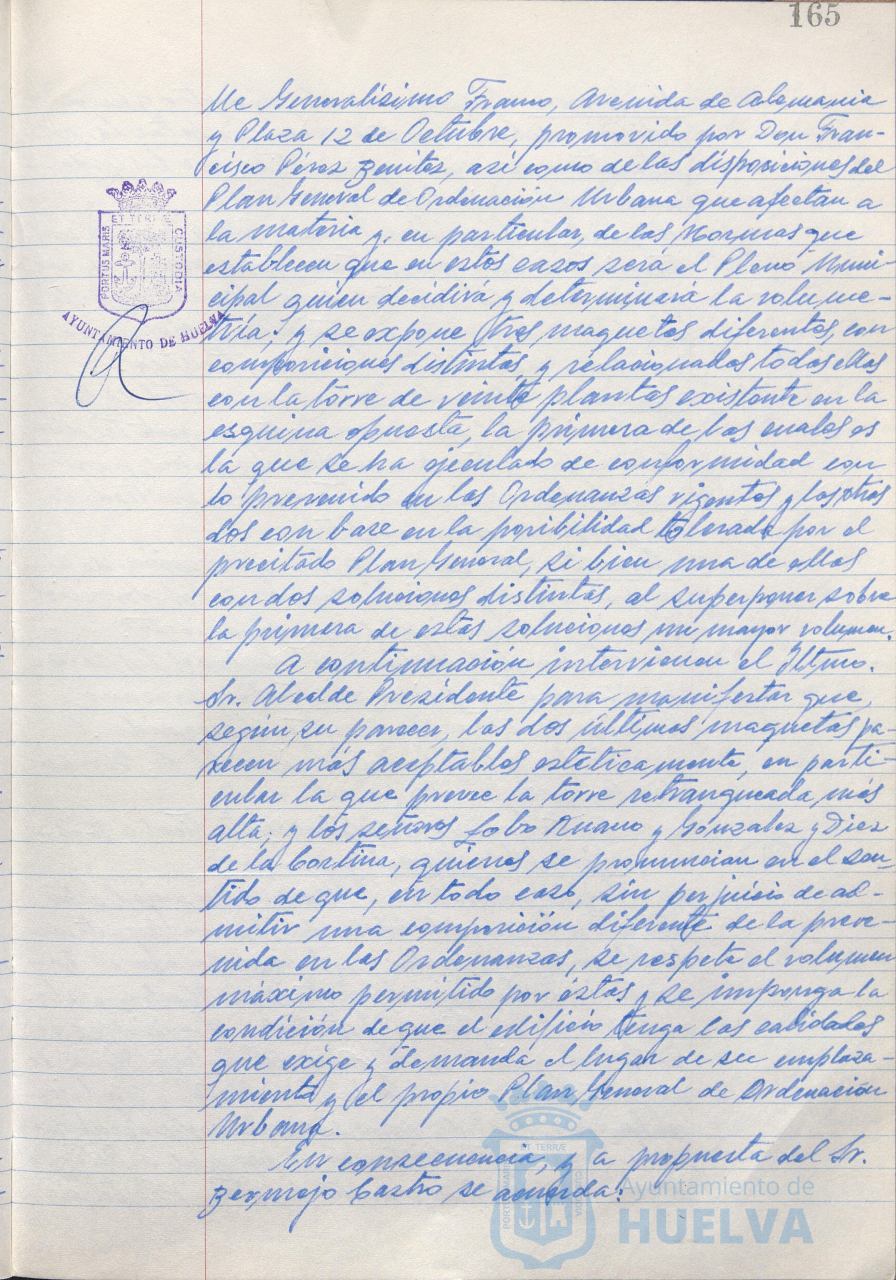 165
lle Generalísimo Franco, Avenida de Alemania
y Plaza 12 de Octubre, promovido por Don Fran-
cisco Pérez Benitez, así como de las disposiciones del
Plan General de Ordenación Urbana que afectan a
la materia y, en particular, de las Normas que
establecen que en estos casos será el Pleno Muni-
cipal quien decidirá y determinará la volume-
tría; y se expone tres maquetas diferentes, con
composiciones distintas, y relacionadas todas ellas
con la torre de veinte plantas existente en la
esquina opuesta, la primera de las cuales es
la que se ha ejecutado de conformidad con
lo prevenido en las Ordenanzas vigentes y las otras
dos con base en la posibilidad tolerada por el
precitado Plan General, si bien una de ellas
con dos soluciones distintas, al superponer sobre
la primera de estas soluciones un mayor volumen.
A continuación intervienen el Iltmo.
Sr. Alcalde Presidente para manifestar que,
según su parecer, las dos últimas maquetas pa-
recen más aceptables estéticamente, en parti-
cular la que prevee la torre retranqueada más
alta; y los señores Lobo Ruano y González y Diez
de la Cortina, quienes se pronuncian en el sen-
tido de que, en todo caso, sin perjuicio de ad-
mitir una composición diferente de la preve-
nida en las Ordenanzas, se respeta el volumen
máximo permitido por éstas y se imponga la
condición de que el edificio tenga las calidades
que exige y demanda el lugar de su emplaza-
miento y el propio Plan General de Ordenación
Urbana.
En consecuencia, y a propuesta del Sr.
Bermejo Castro se acuerda:
PORTUS MARIS ET TERRÆ CUSTODIA
AYUNTAMIENTO DE HUELVA
PORTUS MARIS ET TERRÆ CUSTODIA
Ayuntamiento de
HUELVA